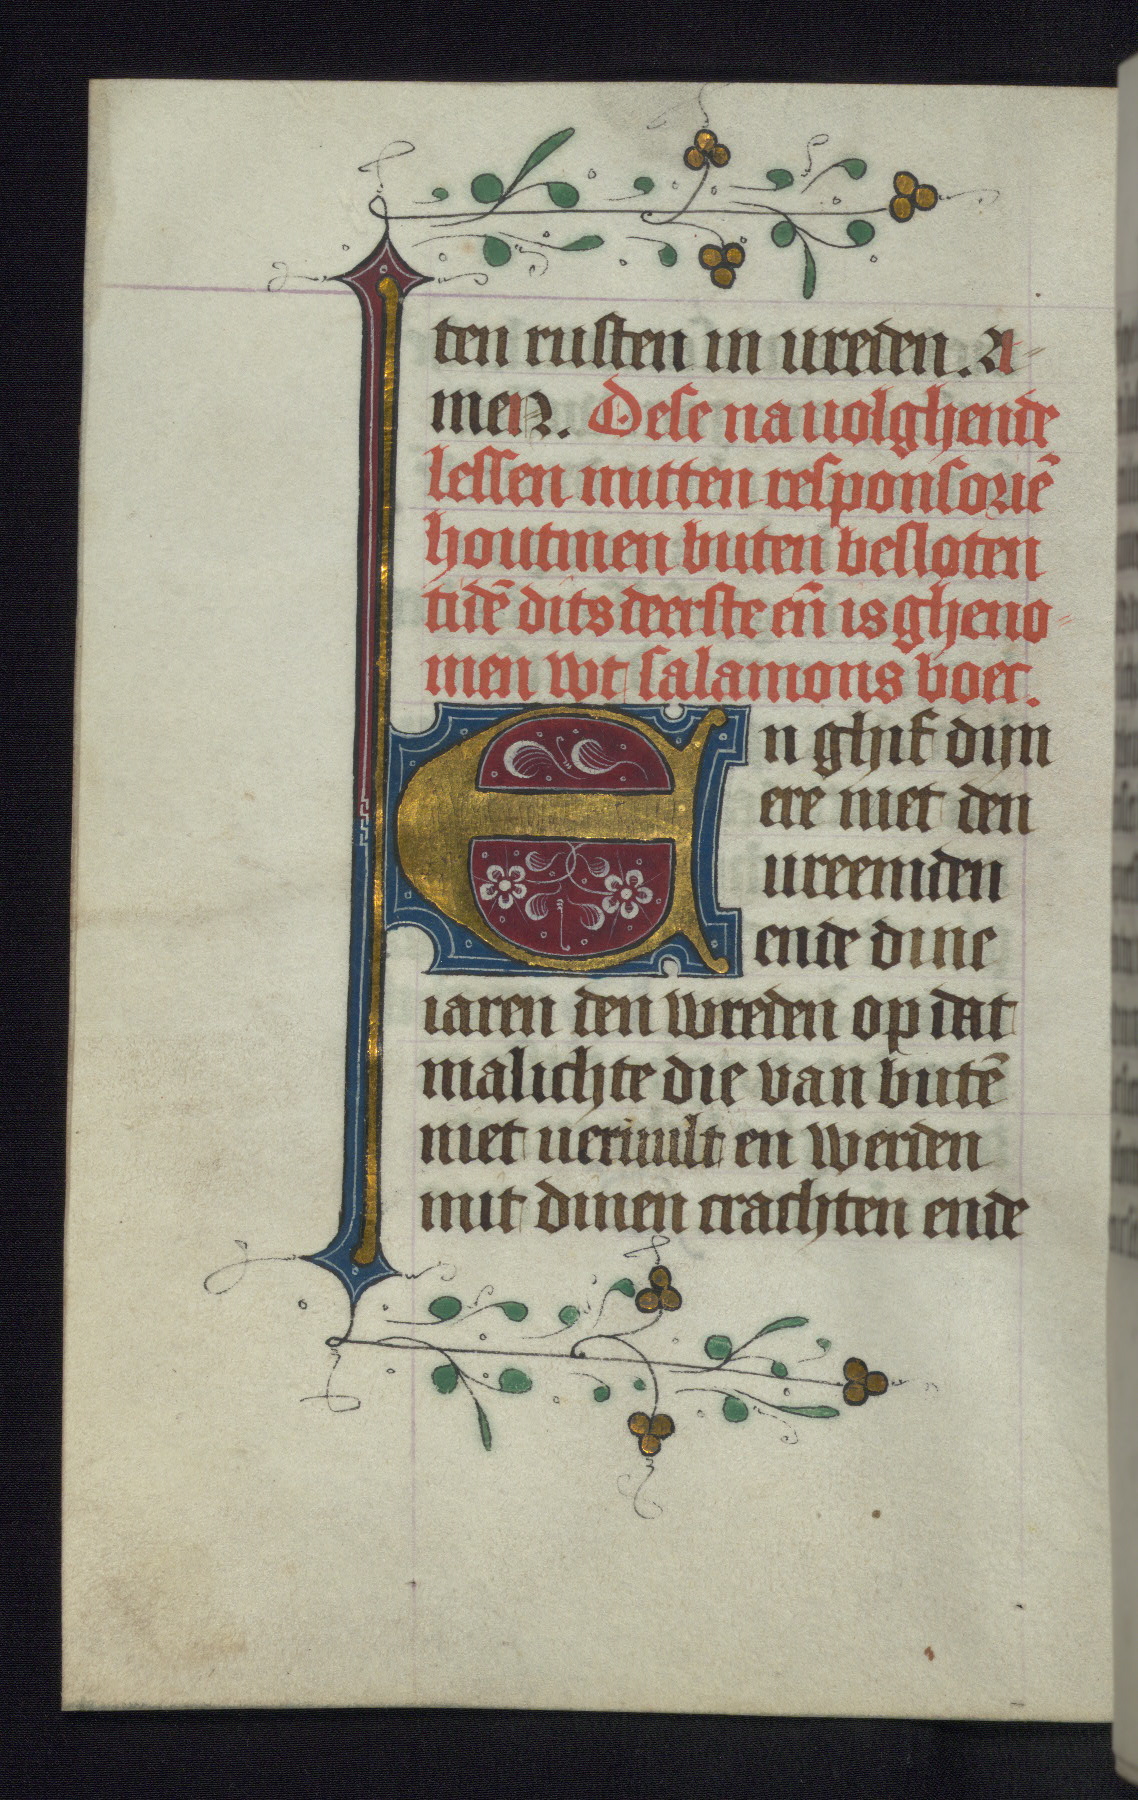 ten rusten in ureden. A-
men. Dese na uolghende
lessen mitten responsoriē
houtmen buten besloten
tidē dits deerste eñ is gheno-
men wt salamons boec.
En ghif dijn
ere niet den
ureemden
ende dine
iaren den wreden op dat
malichte die van butē
niet ueruult en werden
mit dinen crachten ende